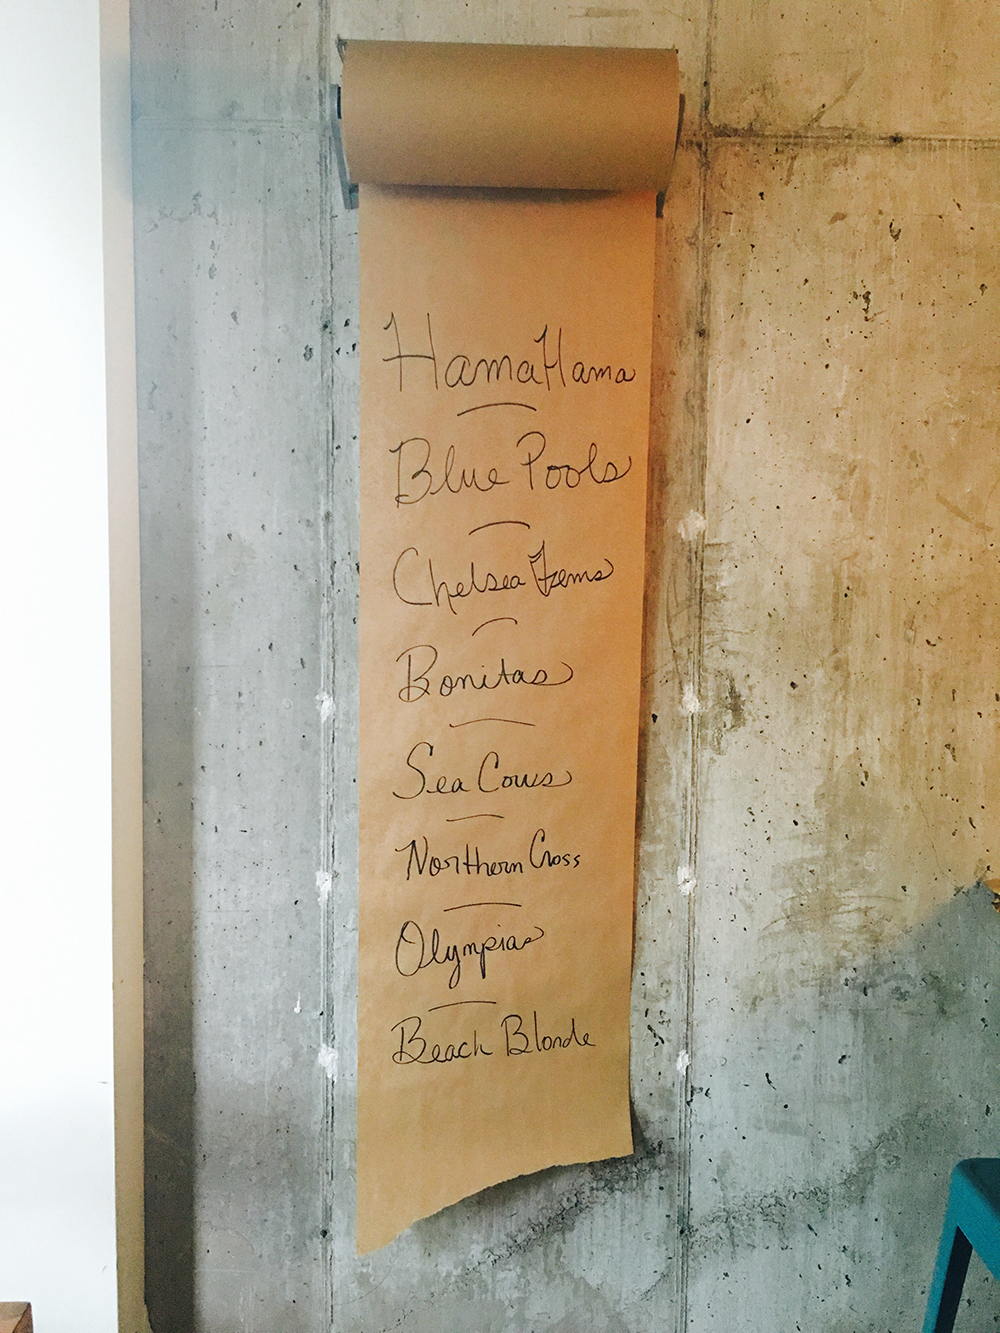 HamaHama
Blue Pools
Chelsea Gems
Bonitas
Sea Cows
Northern Cross
Olympias
Beach Blonde